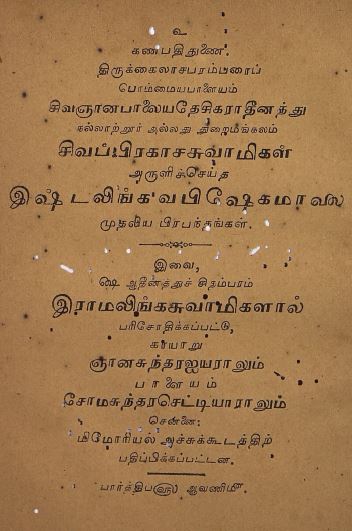 உ
கணபதிதுணை.
திருக்கைலாசபரம்பரைப்
பொம்மையபாளையம்
சிவஞானபாலையதேசிகராதீனத்து
கல்லாற்றூர் அல்லது துறைமங்கலம்
சிவப்பிரகாசசுவாமிகள்
அருளிச்செய்த
இஷ்டலிங்கவபிஷேகமாலை
முதலிய பிரபந்தங்கள்.
இவை,
ஷெ ஆதீனத்துச் சிதம்பரம்
இராமலிங்கசுவாமிகளால்
பரிசோதிக்கப்பட்டு,
காயாறு
ஞானசுந்தரஐயராலும்
பாளையம்
சோமசுந்தரசெட்டியாராலும்
சென்னை:
மிமோரியல் அச்சுக்கூடத்திற்
பதிப்பிக்கப்பட்டன.
பார்த்திப௵ ஆவணி௴